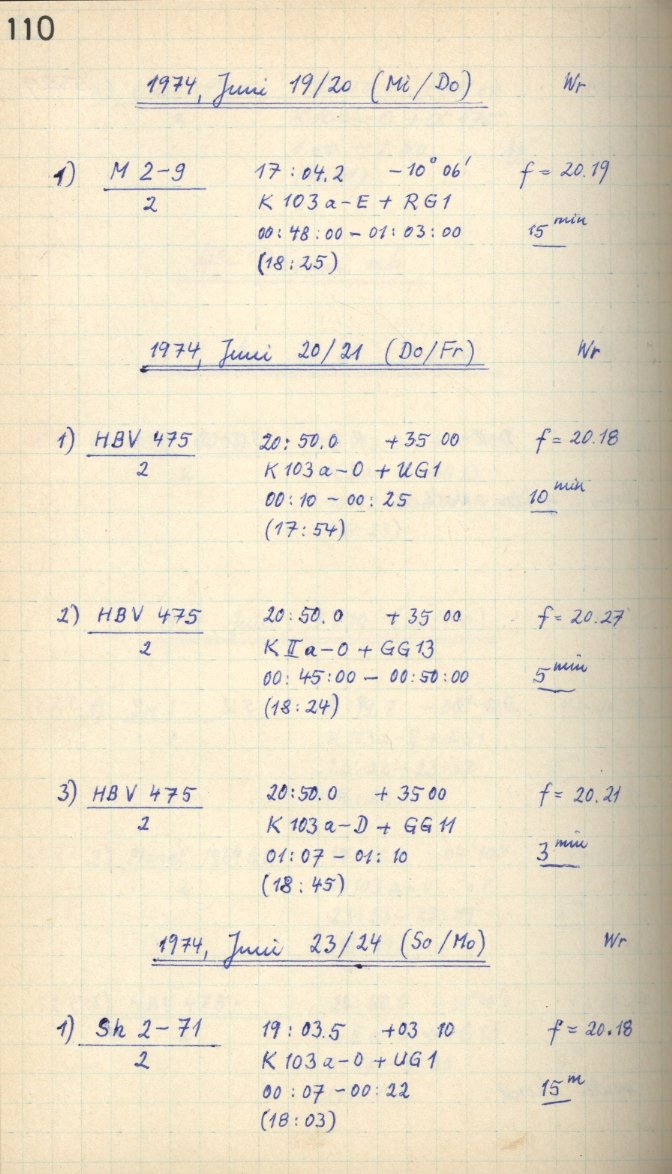 110
1974, Juni 19/20 (Mi/Do) Wr
1) M 2-9 17:04.2 -10° 06' f = 20.19
2 K 103 a-E + RG1
00:48:00 - 01:03:00 15 min
(18:25)
1974, Juni 20/21 (Do/Fr) Wr
1) HBV 475 20:50.0 +35 00 f = 20.18
2 K 103 a-O + UG1
00:10 - 00:25 10 min
(17:54)
2) HBV 475 20:50.0 +35 00 f = 20.27
2 K II a-O + GG 13
00:45:00 - 00:50:00 5 min
(18:24)
3) HBV 475 20:50.0 +35 00 f = 20.21
2 K 103 a-D + GG 11
01:07 - 01:10 3 min
(18:45)
1974, Juni 23/24 (So/Mo) Wr
1) Sh 2-71 19:03.5 +03 10 f = 20.18
2 K 103 a-O + UG1
00:07 - 00:22 15 m
(18:03)